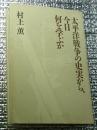 太平洋戦争の史実から、
今日
何を学ぶか
村上 薫